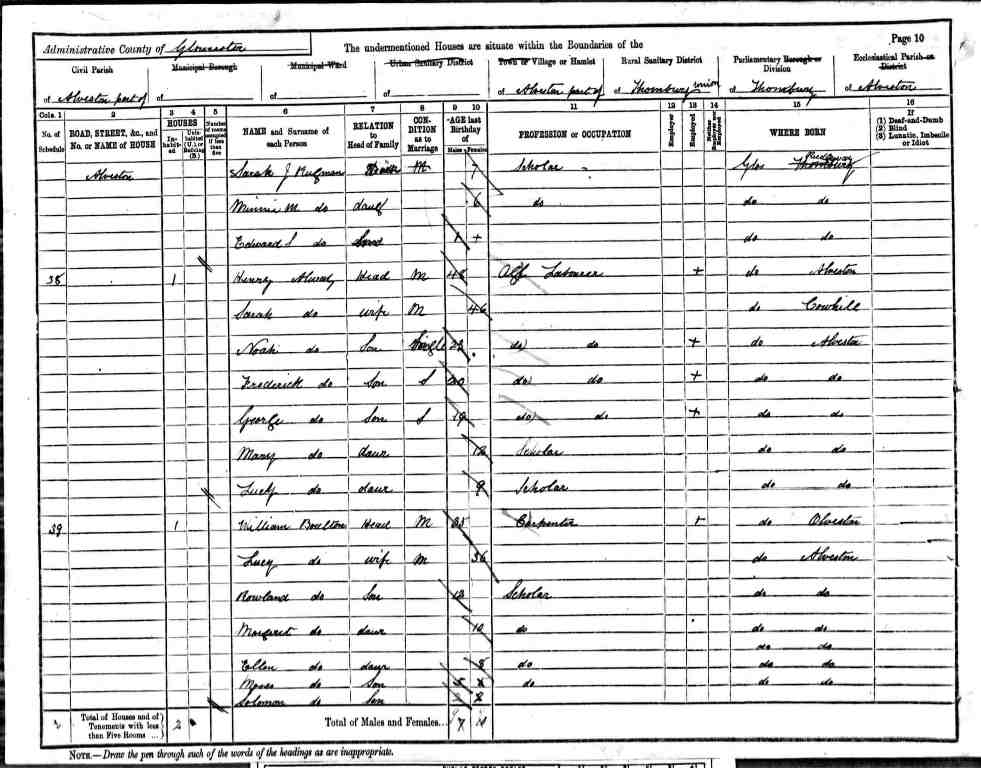 Administrative County of Gloucester
The undermentioned Houses are situate within the Boundaries of the
Page 10
Civil Parish
Municipal Borough
Municipal Ward
Urban Sanitary District
Town or Village or Hamlet
Rural Sanitary District
Parliamentary Borough or Division
Ecclesiastical Parish or District
of Alveston part of
of
of
of
of Alveston part of
of Thornbury union
of Thornbury
of Alveston
Cols. 1 2 3 4 5 6 7 8 9 10 11 12 13 14 15 16
No. of Schedule
ROAD, STREET, &c., and No. or NAME of HOUSE
HOUSES
Inhabited
Uninhabited (U.), or Building (B.)
Number of rooms occupied if less than five
NAME and Surname of each Person
RELATION to Head of Family
CONDITION as to Marriage
AGE last Birthday of
Males Females
PROFESSION or OCCUPATION
Employer
Employed
Neither Employer nor Employed
WHERE BORN
If
(1) Deaf-and-Dumb
(2) Blind
(3) Lunatic, Imbecile or Idiot
Alveston Sarah J 7 Scholar Glos Thornbury
Minnie M do 6 do do do
Edward S do 1 + do do
38 1 Henry Head M Labourer + do Alveston
Sarah do wife M 46 do Cowhill
Noah do Son Single 22 do do + do Alveston
Frederick do Son S 20 do do + do do
George do Son S 19 do do + do do
Mary do daur 12 Scholar do do
Lucy do daur 9 Scholar do do
39 1 William Boulton Head M Carpenter + do Olveston
Lucy do wife M 36 do Alveston
Rowland do Son 12 Scholar do do
Margaret do daur 10 do do do
do do
Ellen do daur 8 do do do
Moses do Son 5 do do do
Solomon do Son
Total of Houses and of Tenements with less than Five Rooms ... 2
Total of Males and Females... 7 10
NOTE.—Draw the pen through such of the words of the headings as are inappropriate.